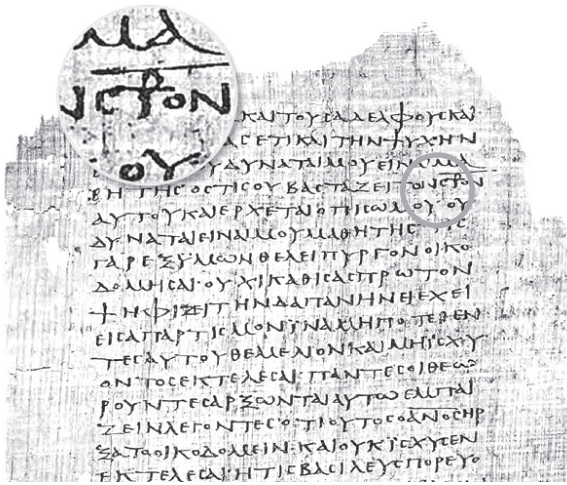 ΜΑ
Ν Ϲ⳨ΟΝ
ΟΥ
ΚΑΙ ΤΟΥϹ ΑΔΕΛΦΟΥϹ ΚΑΙ
ΑϹ ΕΤΙ ΚΑΙ ΤΗΝ ΨΥΧΗΝ
Υ ΔΥΝΑΤΑΙ ΜΟΥ ΕΙΝΑΙ ΜΑ
ΘΗΤΗϹ ΟϹΤΙϹ ΟΥ ΒΑϹΤΑΖΕΙ ΤΟΝ Ϲ⳨ΟΝ
ΑΥΤΟΥ ΚΑΙ ΕΡΧΕΤΑΙ ΟΠΙϹΩ ΜΟΥ ΟΥ
ΔΥΝΑΤΑΙ ΕΙΝΑΙ ΜΟΥ ΜΑΘΗΤΗϹ ΤΙϹ
ΓΑΡ ΕΞ ΥΜΩΝ ΘΕΛΕΙ ΠΥΡΓΟΝ ΟΙΚΟ
ΔΟΜΗϹΑΙ· ΟΥΧΙ ΚΑΘΙϹΑϹ ΠΡΩΤΟΝ
ΨΗΦΙΖΕΙ ΤΗΝ ΔΑΠΑΝΗΝ ΕΙ ΕΧΕΙ
ΕΙϹ ΑΠΑΡΤΙϹΜΟΝ· ΪΝΑ ΜΗ ΠΟΤΕ ΘΕΝ
ΤΕϹ ΑΥΤΟΥ ΘΕΜΕΛΙΟΝ ΚΑΙ ΜΗ ΙϹΧΥ
ΟΝΤΟϹ ΕΚΤΕΛΕϹΑΙ· ΠΑΝΤΕϹ ΟΙ ΘΕΩ
ΡΟΥΝΤΕϹ ΑΡΞΩΝΤΑΙ ΑΥΤΩ ΕΜΠΑΙ
ΖΕΙΝ ΛΕΓΟΝΤΕϹ· ΟΤΙ ΟΥΤΟϹ Ο ΑΝΟϹ ΗΡ
ΞΑΤΟ ΟΙΚΟΔΟΜΕΙΝ· ΚΑΙ ΟΥΚ ΙϹΧΥϹΕΝ
ΕΚΤΕΛΕϹΑΙ· Η ΤΙϹ ΒΑϹΙΛΕΥϹ ΠΟΡΕΥΟ